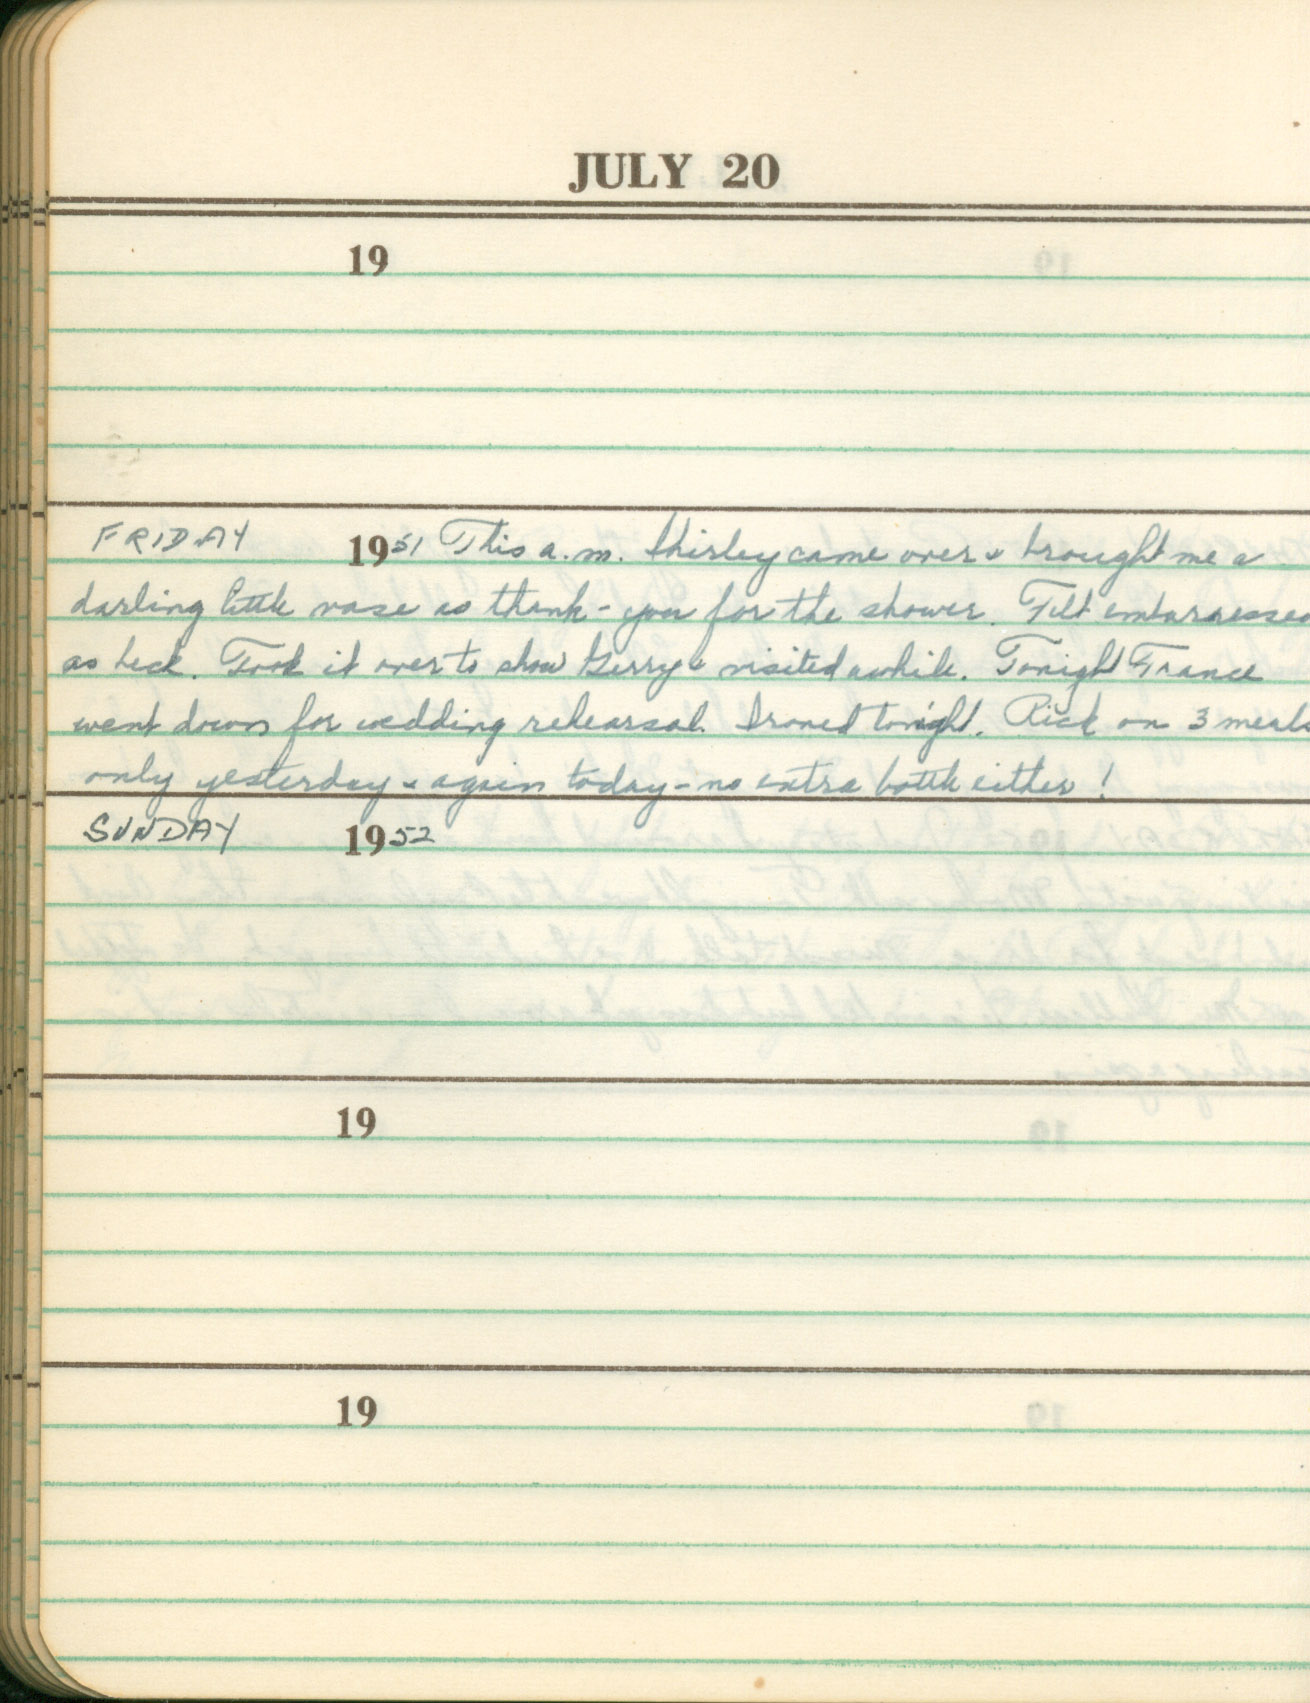 JULY 20
19
FRIDAY 1951 This a.m. Shirley came over & brought me a
darling little vase as thank-you for the shower. Felt embarressed
as heck. Took it over to show Gerry & visited awhile. Tonight France
went down for wedding rehearsal. Ironed tonight. Rick on 3 meals
only yesterday & again today - no extra bottle either!
SUNDAY 1952
19
19